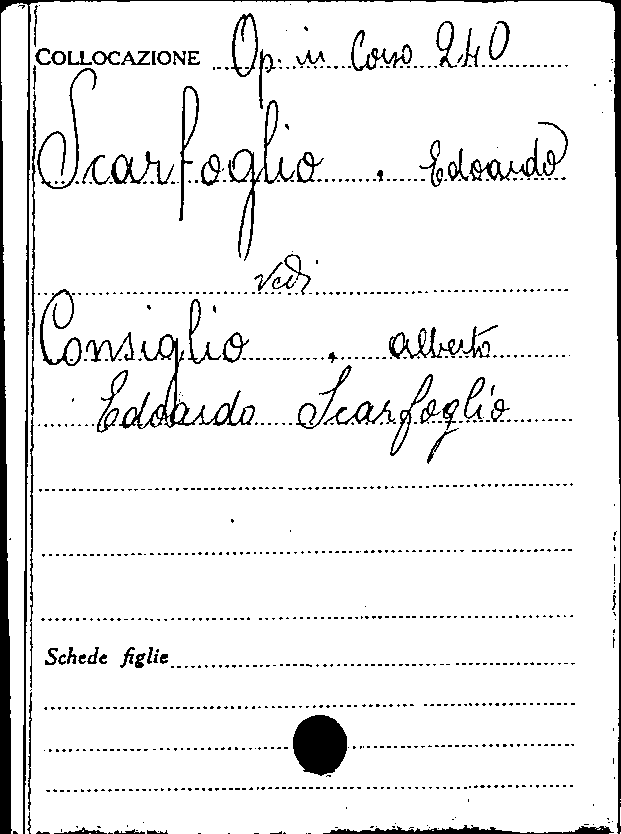 COLLOCAZIONE Op. in Corso 240
Scarfoglio . Edoardo
vedi
Consiglio . Alberto
Edoardo Scarfoglio
Schede figlie